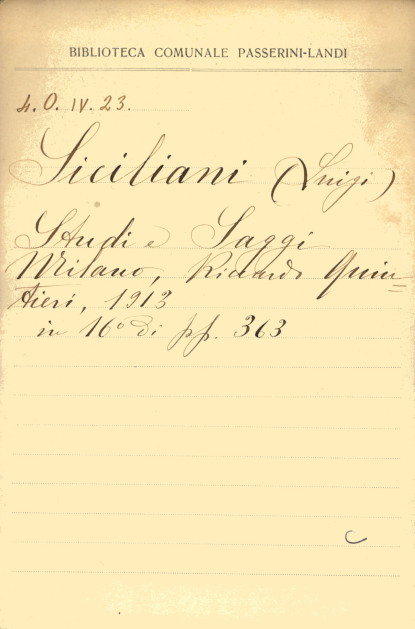 BIBLIOTECA COMUNALE PASSERINI-LANDI
4. O. IV. 23.
Siciliani (Luigi)
Studi e Saggi
Milano, Riccardo Quin=
tieri, 1913
in 16° di pp. 363
C